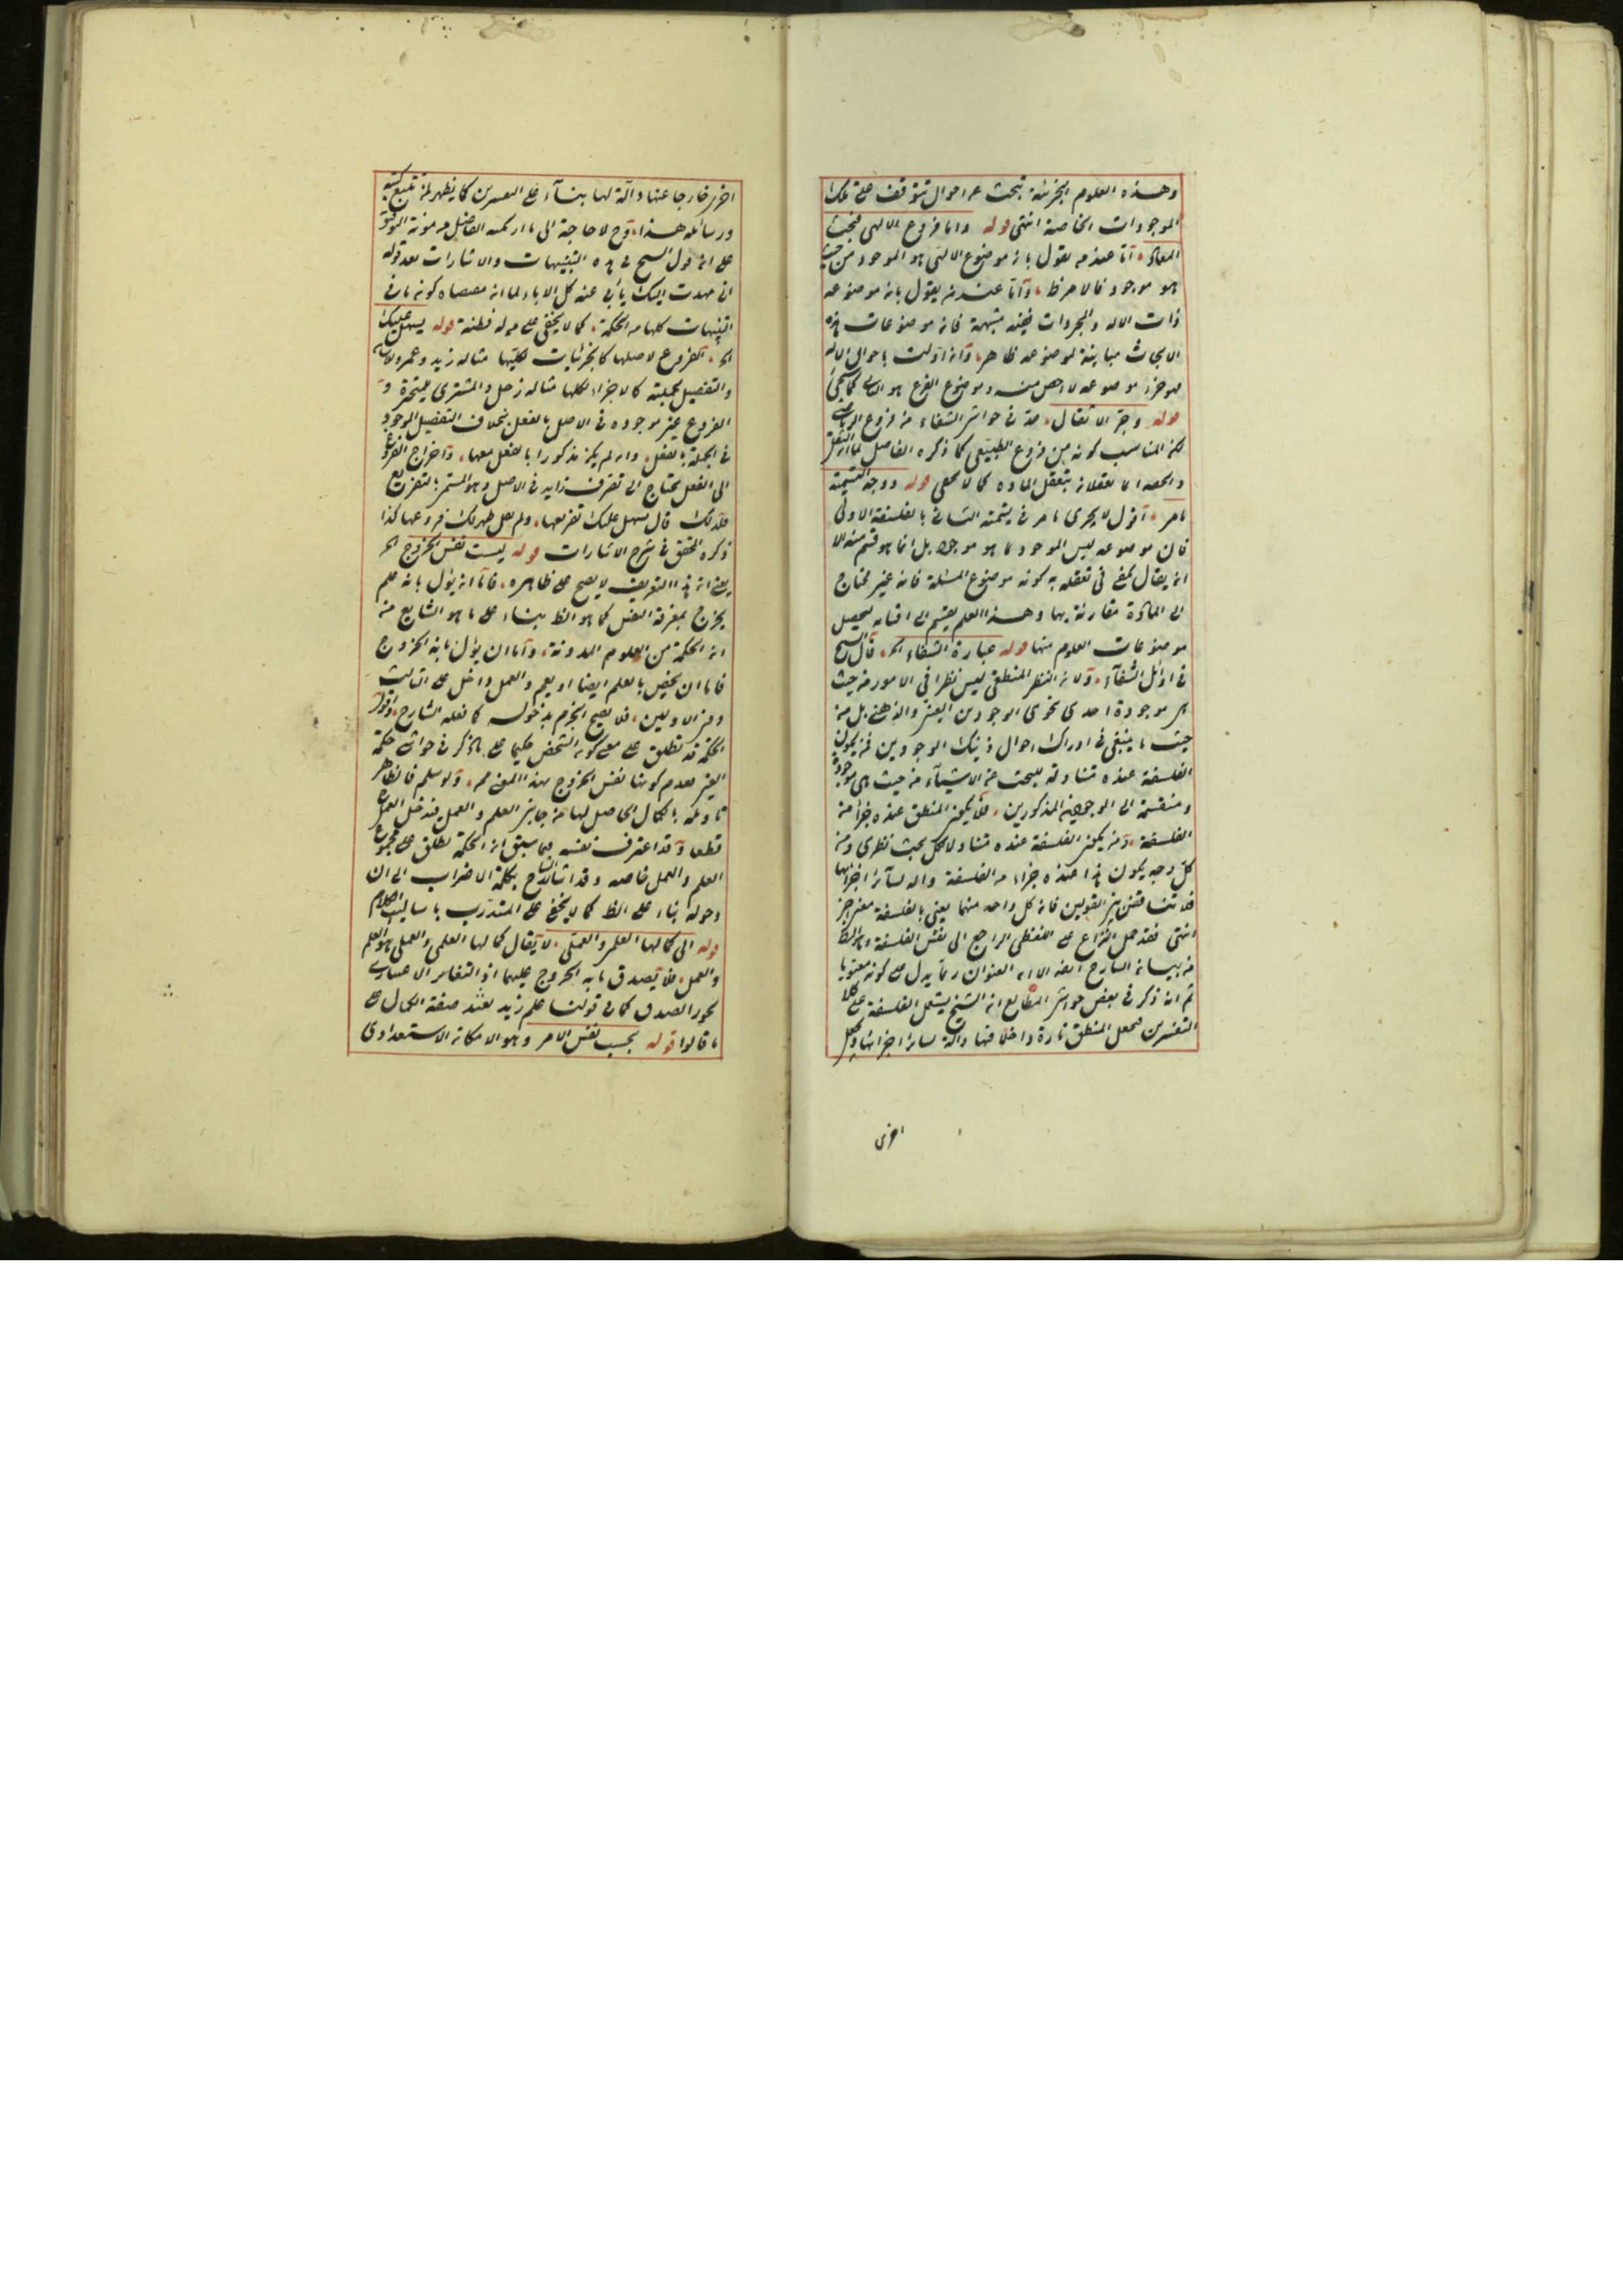 وهذه العلوم الجزئية تبحث عن احوال تتوقف على تلك
الموجودات الخاصة انتهى قوله واما فروع الالهى فبحث
المعاد اما عند من يقول بان موضوع الالهى هو الموجود من حيث
هو موجود فالامر ظ واما عند من يقول بان موضوعه
ذات الاله والمجردات فيه شبهة فان موضوعات هذه
الابحاث مباينة لموضوعه ظاهرا وان اولت باحوال الاله
موضوعه لا اخص منه وموضوع الفرع هو الثانى كما يجئ
قوله وجر الاثقال عد فى حواشى الشفاء من فروع الرياضى
لكن المناسب كونه من فروع الطبيعى كما ذكره الفاضل لما ان الثقل
والخفة انما تعقلان بتعقل المادة كما لا يخفى قوله ووجه التسمية
ما مر اقول لا يجرى ما مر فى تسمية الثانى بالفلسفة الاولى
فان موضوعه ليس الموجود بما هو موجود بل انما هو قسم منه الا
ان يقال يكفى فى تعقله به كونه موضوع المسئلة فانه غير محتاج
الى المادة مقارنة بها وهذا العلم يقسم الى اقسام تحصيل
موضوعات العلوم منها قوله عبارة الشفاء الخ قال الشيخ
فى اوائل الشفاء ولان النظر المنطقى ليس نظرا فى الامور من حيث
هى موجودة احدى نحوى الوجودين العينى والذهنى بل من
حيث ما ينبغى فى ادراك احوال ذينك الوجودين فمن يكون
الفلسفة عنده متناولة للبحث عن الاشياء من حيث هى موجودة
ومنقسمة الى الوجودين المذكورين فلا يكون المنطق عنده جزأ من
الفلسفة ومن يكون الفلسفة عنده متناولا لكل بحث نظرى ومن
كل وجه يكون هذا عنده جزءا من الفلسفة واله لسائر اجزائها
فلا تناقض بين القولين فان كل واحد منهما يعنى بالفلسفة معنى آخر
انتهى فقد حمل النزاع على اللفظى الراجع الى نفس الفلسفة وهو الظ
من بيان الشارح ايضا الا ان العنوان ربما يدل على كونه معنويا
ثم انه ذكر فى بعض حواشى المطالع ان الشيخ يستعمل الفلسفة على كلا
التفسيرين فيجعل المنطق تارة داخلا فيها وآلة لسائر اجزائها ويجعل
اخرى
اخرى خارجا عنها وآلة لها بناء على التفسيرين كما يظهر لمن تتبع كتبه
ورسائله هذا وح لا حاجة الى ما ارتكبه الفاضل من مونة التوفيق
على ان قول الشيخ فى هذه التنبيهات والاشارات بعد قوله
انى مهدت اليك يأبى عنه كل الاباء لما ان مقتضاه كونه ما فى
التنبيهات كلها من الحكمة كما لا يخفى على من له فطنة قوله يسهل عليك
الخ الفروع لاصلها كالجزئيات لكليتها مثاله زيد وعمرو لانسان
والتفصيل لجملته كالاجزاء لكلها مثاله زحل والمشترى لمتحيرة و
الفروع غير موجودة فى الاصل بالفعل بخلاف التفصيل الموجود
فى الجملة بالفعل وان لم يكن مذكورا بالفعل معها واخراج الفروع
الى الفعل يحتاج الى تصرف زايد فى الاصل وهو المستمر بالتفريع
فلذلك قال سهل عليك تفريعها ولم يقل ظهر لك فروعها كذا
ذكره المحقق فى شرح الاشارات قوله ليست نفس الخروج الخ
يعنى ان هذا التعريف لا يصح على ظاهره فاما ان يؤل بانه علم
يخرج بمعرفة النفس كما هو الظ بناء على ما هو الشايع من
ان الحكمة من العلوم المدونة واما ان يؤل بما به الخروج
فاما ان يخص بالعلم ايضا او يعم والعمل داخل على الثالث
دون الاولين فلا يصح الجزم بدخوله كما فعله الشارح واقول
الحكمة قد تطلق على معنى كونه الشخص حكيما على ما ذكر فى حواشى حكمة
العين فعدم كونها نفس الخروج بهذا المعنى مم ولو سلم فالظاهر
تاويله بالكمال الحاصل لها من جانبى العلم والعمل فيدخل العمل
قطعا وقد اعترف نفسه فيما سبق ان الحكمة تطلق على مجموع
العلم والعمل خاصة وقد اشار الشارح بكلمة الاضراب الى ان
دخوله بناء على الظ كما لا يخفى على المتدرب باساليب الكلام
قوله الى كمالها العلمى والعملى لا يقال كمالها العلمى والعملى هو العلم
والعمل فلا يصدق ما به الخروج عليهما اذ التغاير الاعتبارى
يجوز الصدق كما فى قولنا علم زيد يفيد صفة الكمال على
ما قالوا قوله بحسب نفس الامر وهو الامكان الاستعدادى